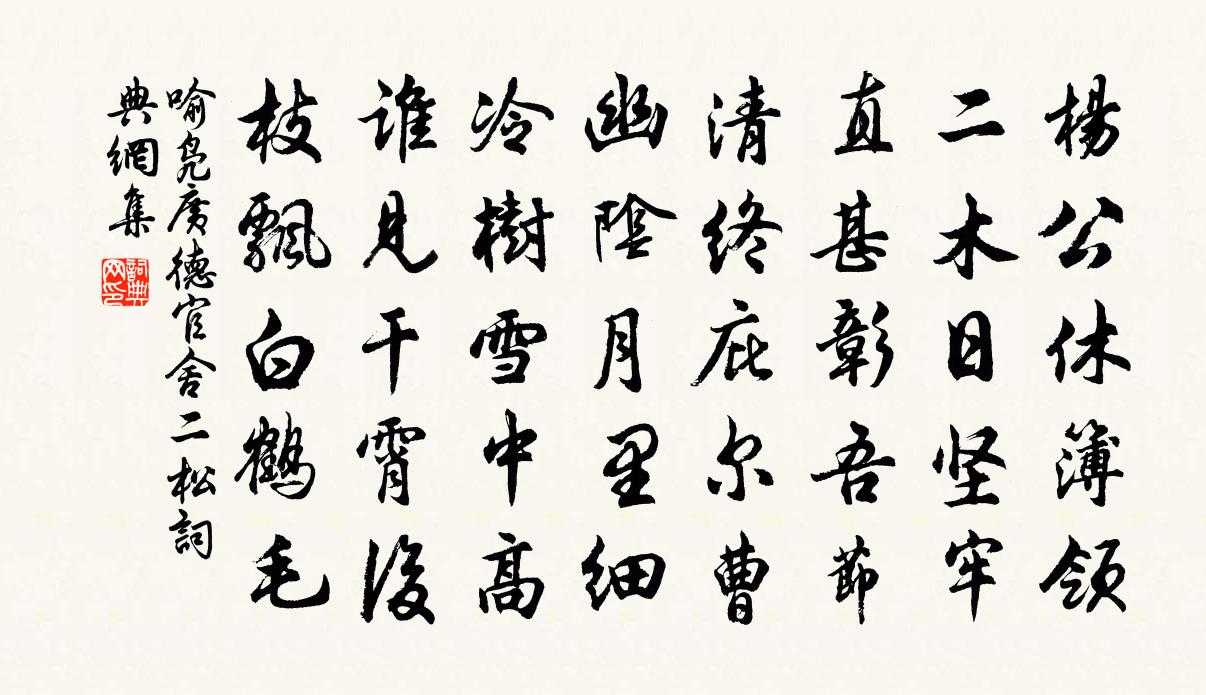 楊公休簿領
二木日坚牢
直甚彰吾節
清终庇尔曹
幽陰月里细
冷樹雪中高
谁見干霄後
枝飄白鶴毛
喻凫廣德官舍二松詞
典網集
詞典网印